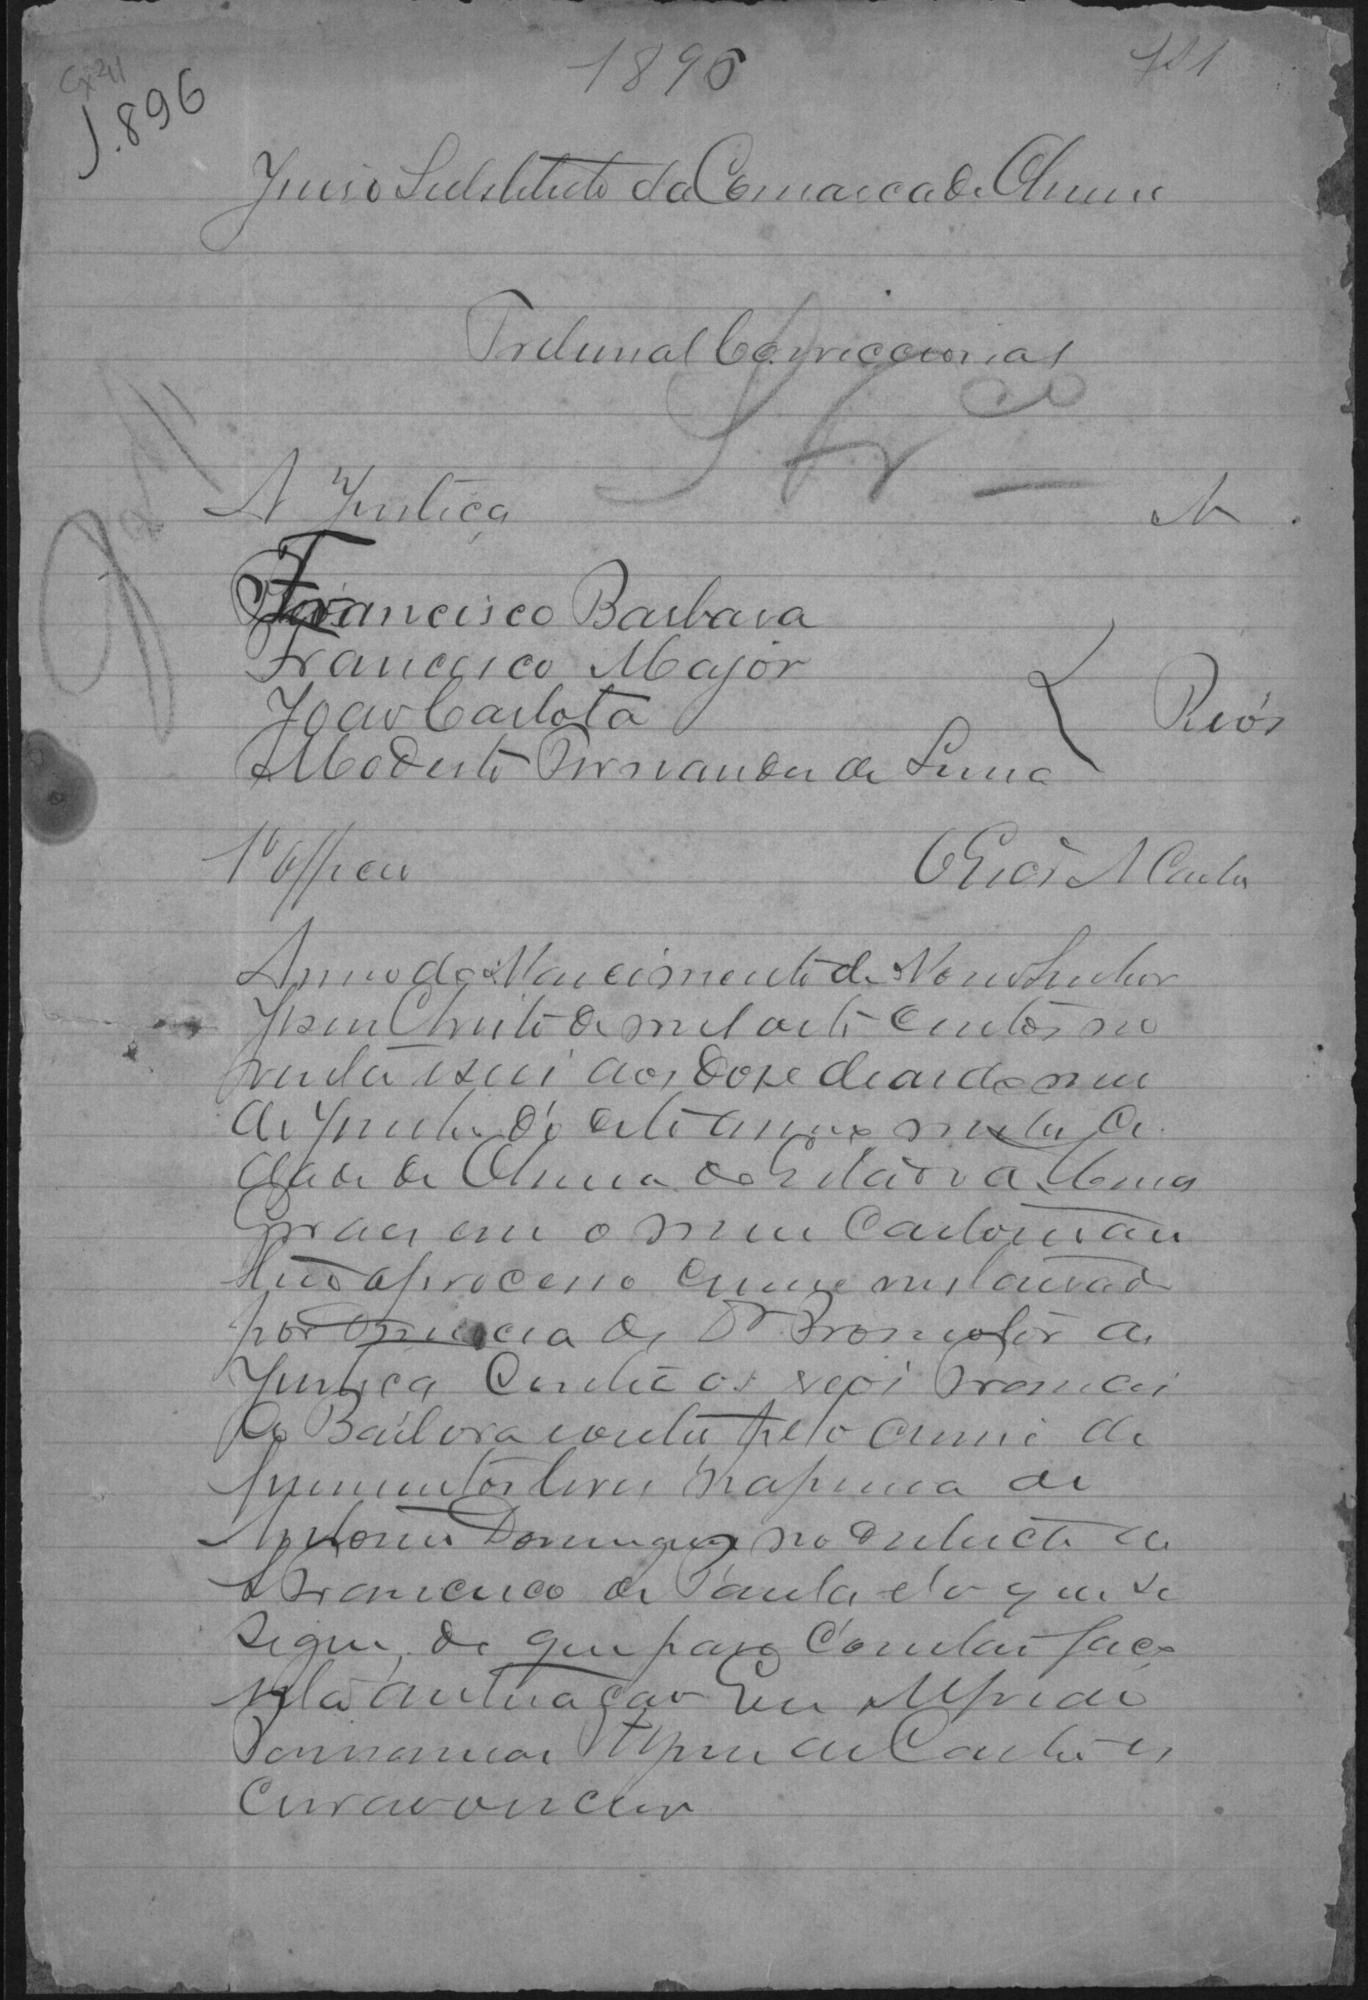 1896
Cx 41
1.896
Juiso Substituto da Comarca de
Tribunal Correccional
A Justiça A
Francisco Barbara
Francisco Major
João Carlota
Modesto Fernandes de Lima
Reos
1º Officio
Anno do Nascimento de Nosso Senhor
Jesus Christo de mil oito centos no
venta e seis aos dose dias do mes
de Junho do dito anno nesta Ci
dade de do Estado de Minas
Geraes em o meu Cartorio au
tuo o processo crime instaurado
por denuncia do Dr Promotor de
Justiça Contra os reos Francis
co Barbara e outros pelo crime de
ferimentos leves na pessoa de
Antonio Domingues no districto de
S Francisco de Paula e o que se
segue, de que para constar faço
esta autuação Eu Alfredo
de Castro es
crivão o escrevi